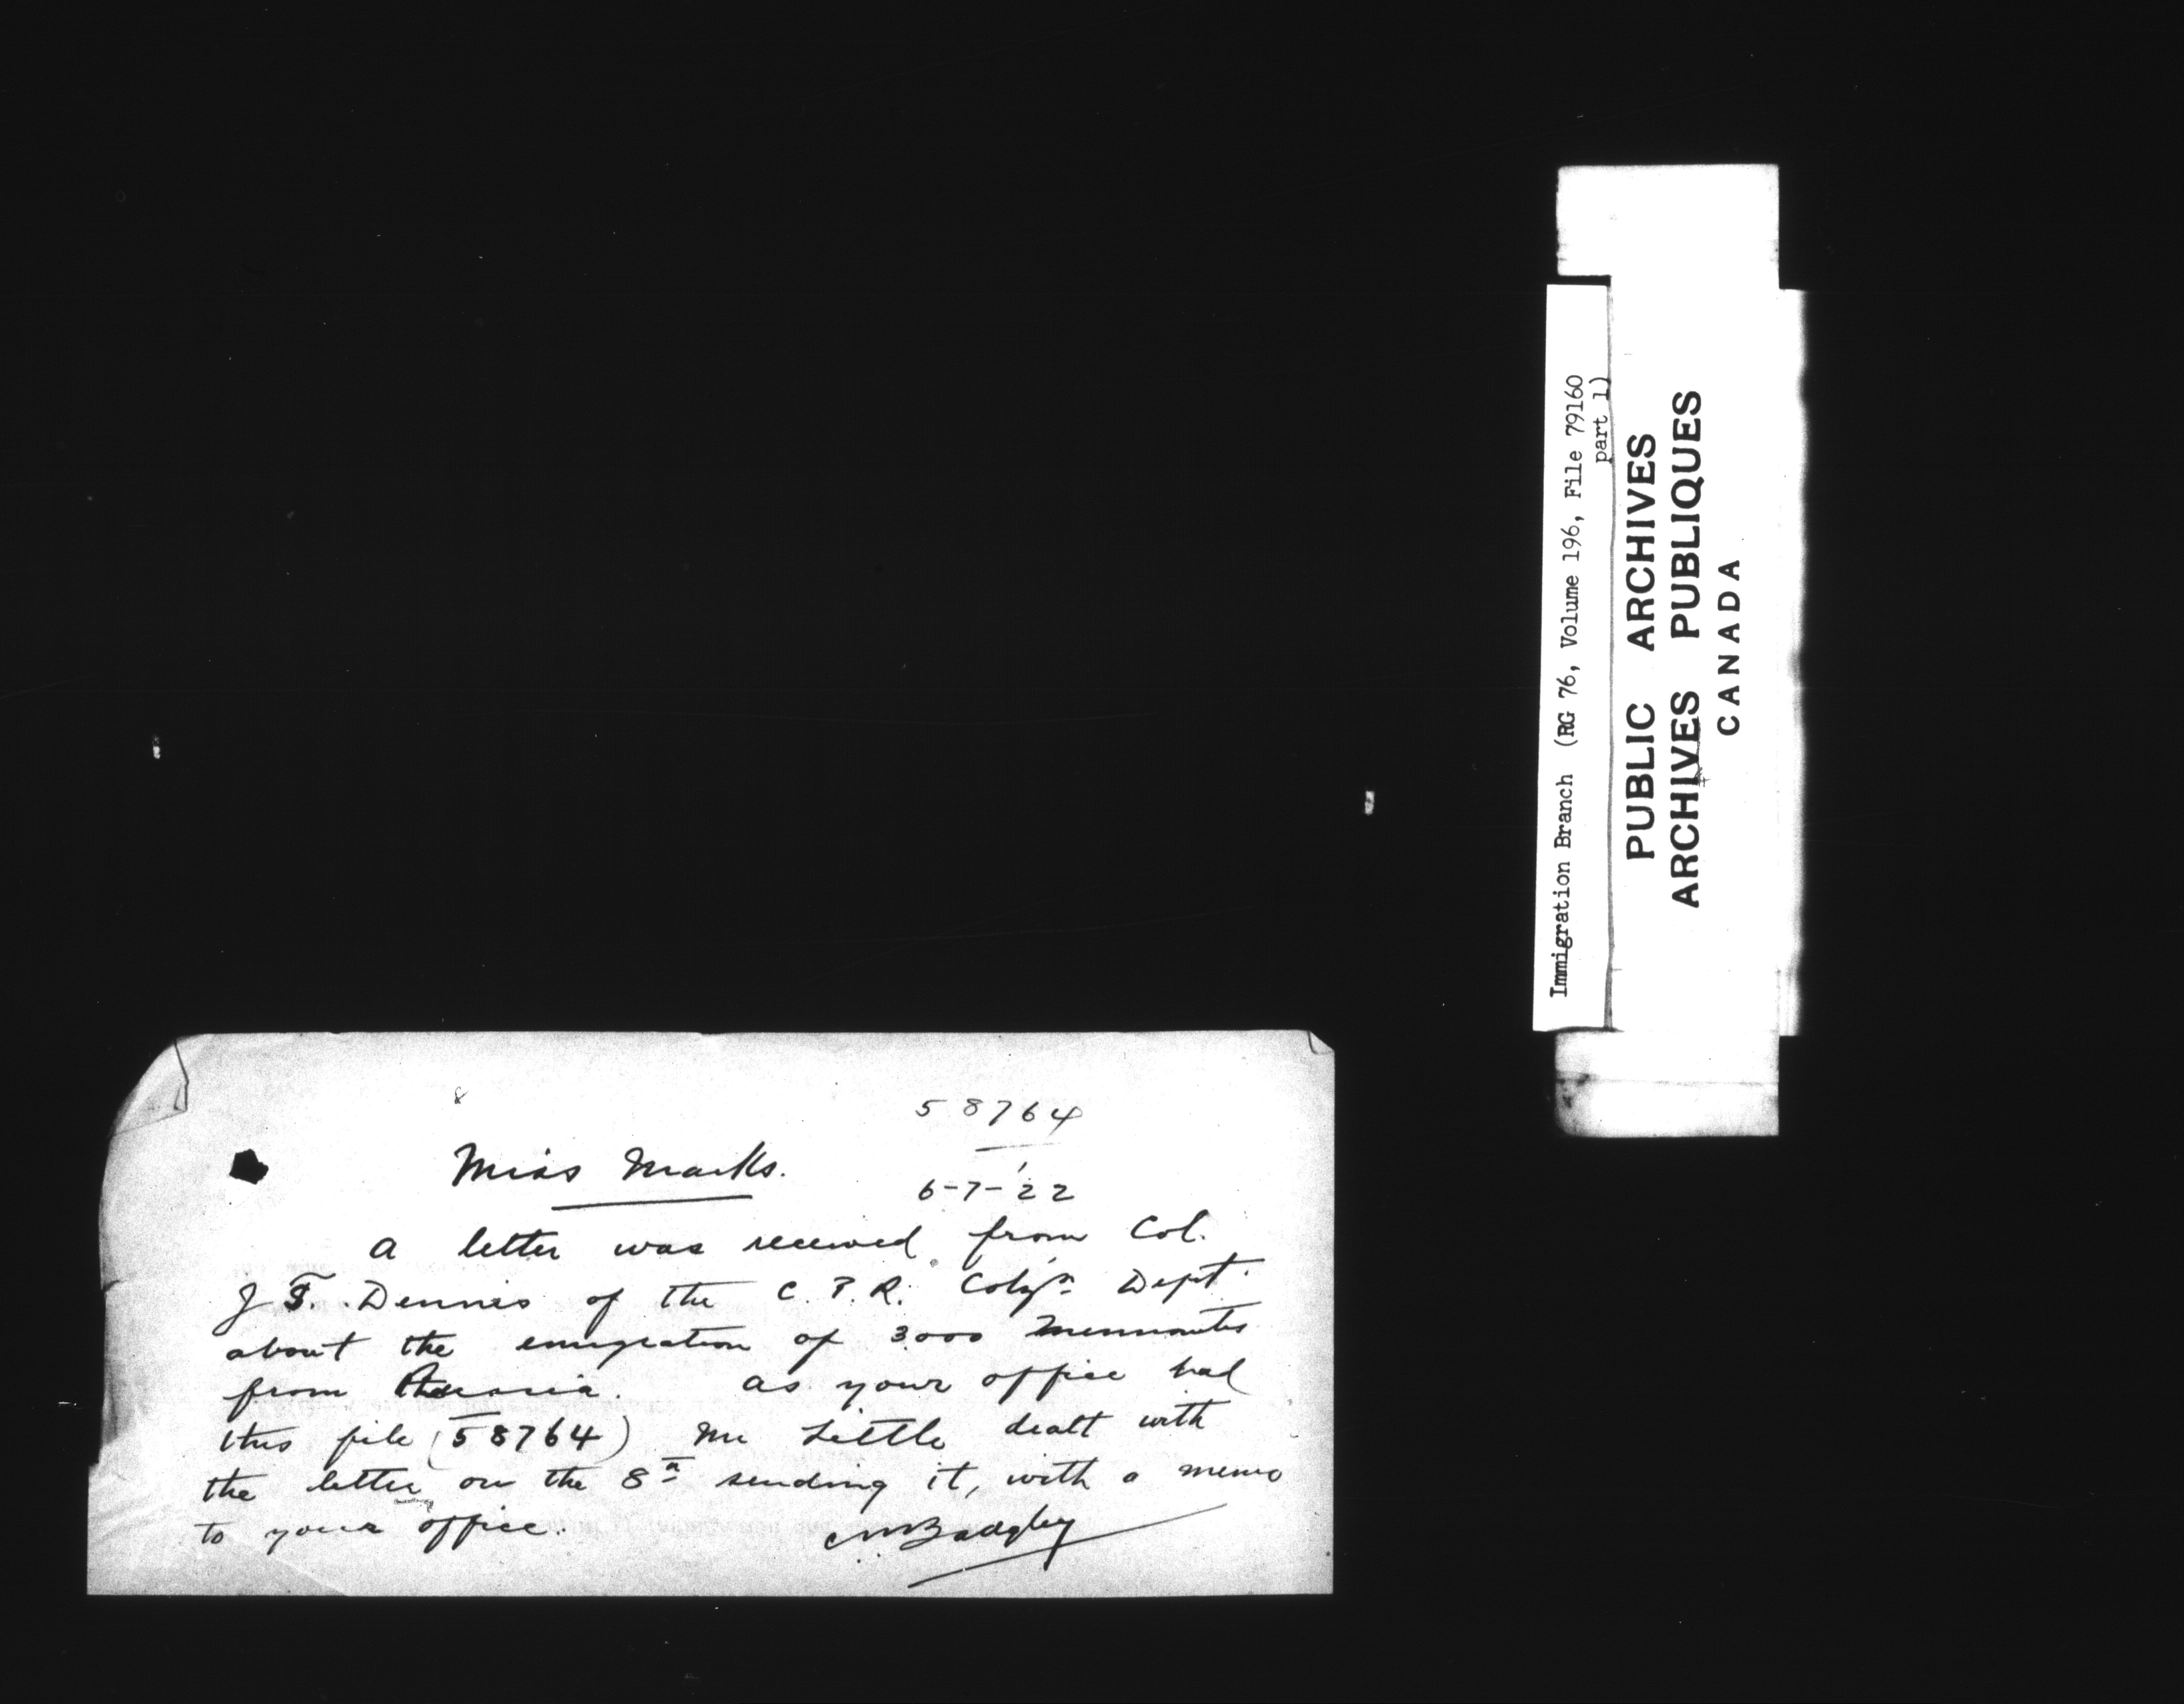 58764
Miss Marks.
6-7-'22
A letter was received from Col.
J S. Dennis of the C. P. R. Col'z'n Dept.
about the emigration of 3000 Mennonites
from Russia. As your office had
this file (58764) Mr Little dealt with
the letter on the 8th sending it, with a memo
to your office.
CMBadgley
Immigration Branch (RG 76, Volume 196, File 79160
part 1)
PUBLIC ARCHIVES
ARCHIVES PUBLIQUES
CANADA